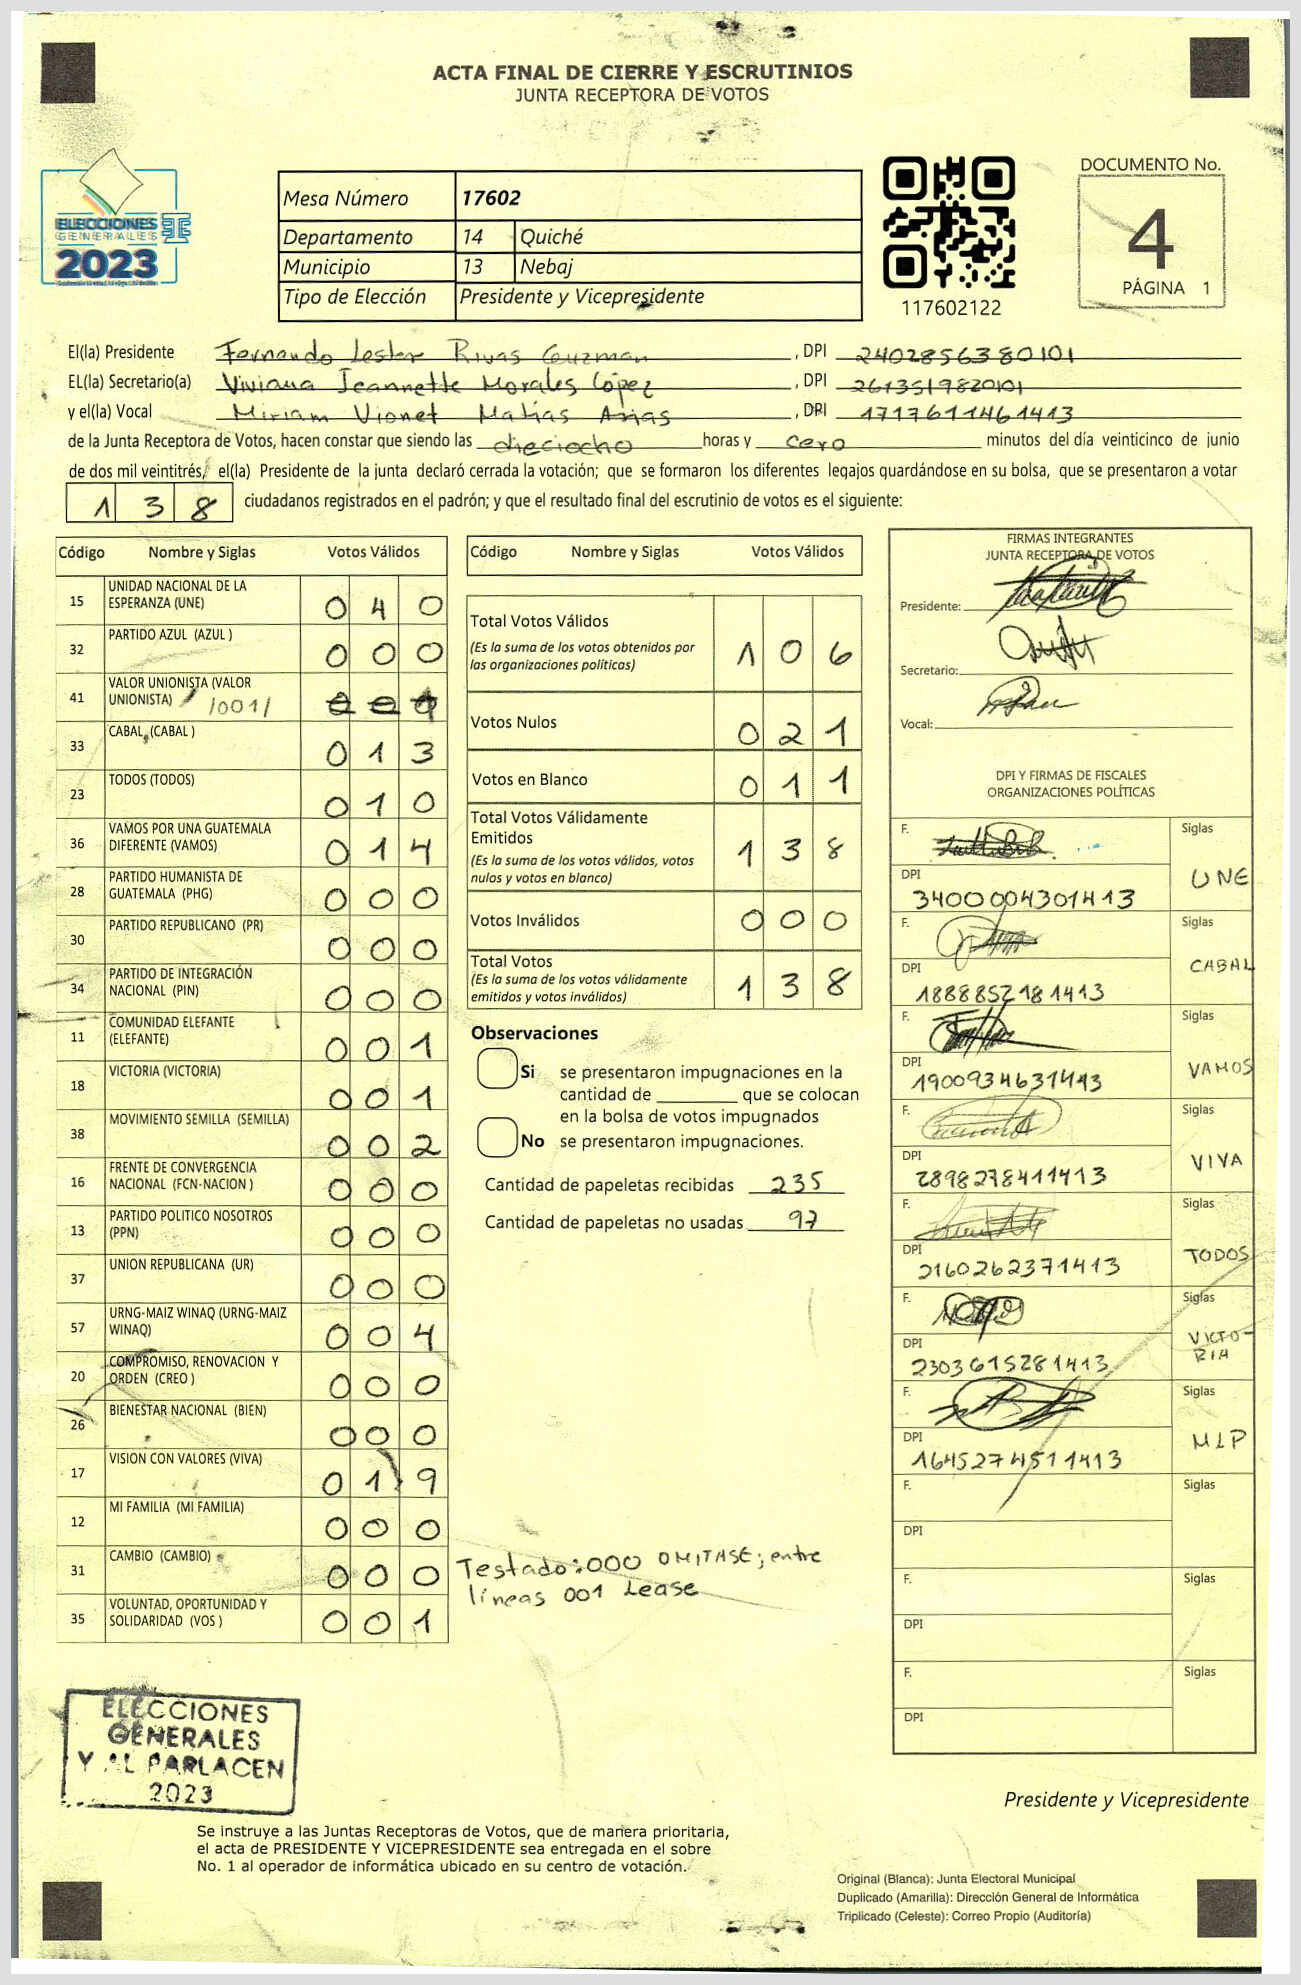 ACTA FINAL DE CIERRE Y ESCRUTINIOS
JUNTA RECEPTORA DE VOTOS
ELECCIONES
GENERALES
2023
Mesa Número 17602
Departamento 14 Quiché
Municipio 13 Nebaj
Tipo de Elección Presidente y Vicepresidente
117602122
DOCUMENTO No.
4
PÁGINA 1
El(la) Presidente Fernando Lester Rivas Guzman, DPI 2402856380101
EL(la) Secretario(a) Viviana Jeannette Morales López, DPI 2613519820101
y el(la) Vocal Miriam Vionet Matías Arias, DPI 1717611461413
de la Junta Receptora de Votos, hacen constar que siendo las dieciocho horas y cero minutos del día veinticinco de junio
de dos mil veintitrés, el(la) Presidente de la junta declaró cerrada la votación; que se formaron los diferentes legajos quardándose en su bolsa, que se presentaron a votar
138 ciudadanos registrados en el padrón; y que el resultado final del escrutinio de votos es el siguiente:
Código Nombre y Siglas Votos Válidos
15 UNIDAD NACIONAL DE LA ESPERANZA (UNE) 0 4 0
32 PARTIDO AZUL (AZUL ) 0 0 0
41 VALOR UNIONISTA (VALOR UNIONISTA) /001/
33 CABAL (CABAL ) 0 1 3
23 TODOS (TODOS) 0 1 0
36 VAMOS POR UNA GUATEMALA DIFERENTE (VAMOS) 0 1 4
28 PARTIDO HUMANISTA DE GUATEMALA (PHG) 0 0 0
30 PARTIDO REPUBLICANO (PR) 0 0 0
34 PARTIDO DE INTEGRACIÓN NACIONAL (PIN) 0 0 0
11 COMUNIDAD ELEFANTE (ELEFANTE) 0 0 1
18 VICTORIA (VICTORIA) 0 0 1
38 MOVIMIENTO SEMILLA (SEMILLA) 0 0 2
16 FRENTE DE CONVERGENCIA NACIONAL (FCN-NACION ) 0 0 0
13 PARTIDO POLITICO NOSOTROS (PPN) 0 0 0
37 UNION REPUBLICANA (UR) 0 0 0
57 URNG-MAIZ WINAQ (URNG-MAIZ WINAQ) 0 0 4
20 COMPROMISO, RENOVACION Y ORDEN (CREO ) 0 0 0
26 BIENESTAR NACIONAL (BIEN) 0 0 0
17 VISION CON VALORES (VIVA) 0 1 9
12 MI FAMILIA (MI FAMILIA) 0 0 0
31 CAMBIO (CAMBIO) 0 0 0
35 VOLUNTAD, OPORTUNIDAD Y SOLIDARIDAD (VOS ) 0 0 1
Código Nombre y Siglas Votos Válidos
Total Votos Válidos 1 0 6
(Es la suma de los votos obtenidos por
las organizaciones políticas)
Votos Nulos 0 2 1
Votos en Blanco 0 1 1
Total Votos Válidamente
Emitidos 1 3 8
(Es la suma de los votos válidos, votos
nulos y votos en blanco)
Votos Inválidos 0 0 0
Total Votos 1 3 8
(Es la suma de los votos válidamente
emitidos y votos inválidos)
Observaciones
Si se presentaron impugnaciones en la
cantidad de ________ que se colocan
en la bolsa de votos impugnados
No se presentaron impugnaciones.
Cantidad de papeletas recibidas 235
Cantidad de papeletas no usadas 97
Testado: 000 OMITASE; entre
líneas 001 Lease
FIRMAS INTEGRANTES
JUNTA RECEPTORA DE VOTOS
Presidente:
Secretario:
Vocal:
DPI Y FIRMAS DE FISCALES
ORGANIZACIONES POLÍTICAS
F. Siglas
DPI 3400004301413 UNE
F. Siglas
DPI 1888852181413 CABAL
F. Siglas
DPI 1900934631413 VAMOS
F. Siglas
DPI 2898278411413 VIVA
F. Siglas
DPI 2160262371413 TODOS
F. Siglas
DPI 2303615281413 VICTO-
RIA
F. Siglas
DPI 1645274511413 MLP
F. Siglas
DPI
F. Siglas
DPI
F. Siglas
DPI
ELECCIONES
GENERALES
Y AL PARLACEN
2023
Presidente y Vicepresidente
Se instruye a las Juntas Receptoras de Votos, que de manera prioritaria,
el acta de PRESIDENTE Y VICEPRESIDENTE sea entregada en el sobre
No. 1 al operador de informática ubicado en su centro de votación.
Original (Blanca): Junta Electoral Municipal
Duplicado (Amarilla): Dirección General de Informática
Triplicado (Celeste): Correo Propio (Auditoría)